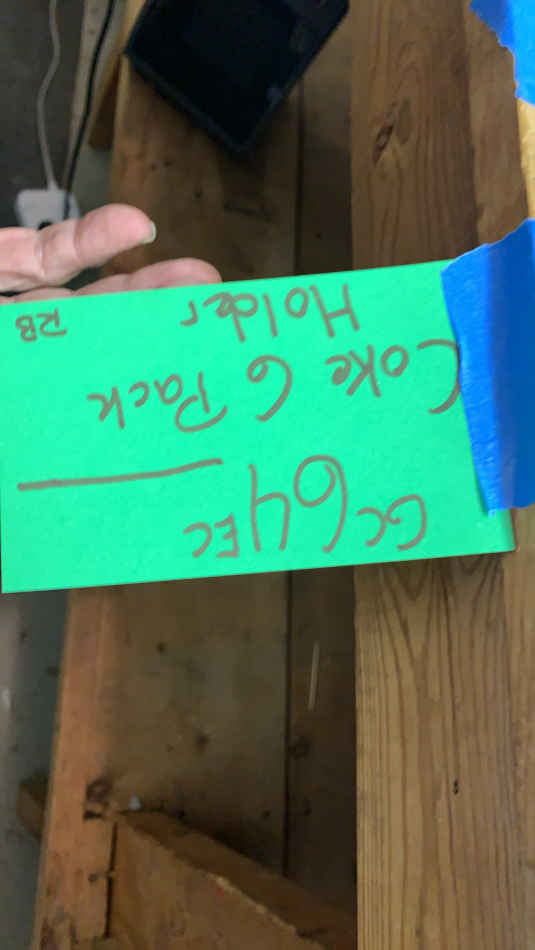 GC64EC
Coke 6 Pack
Holder
RB